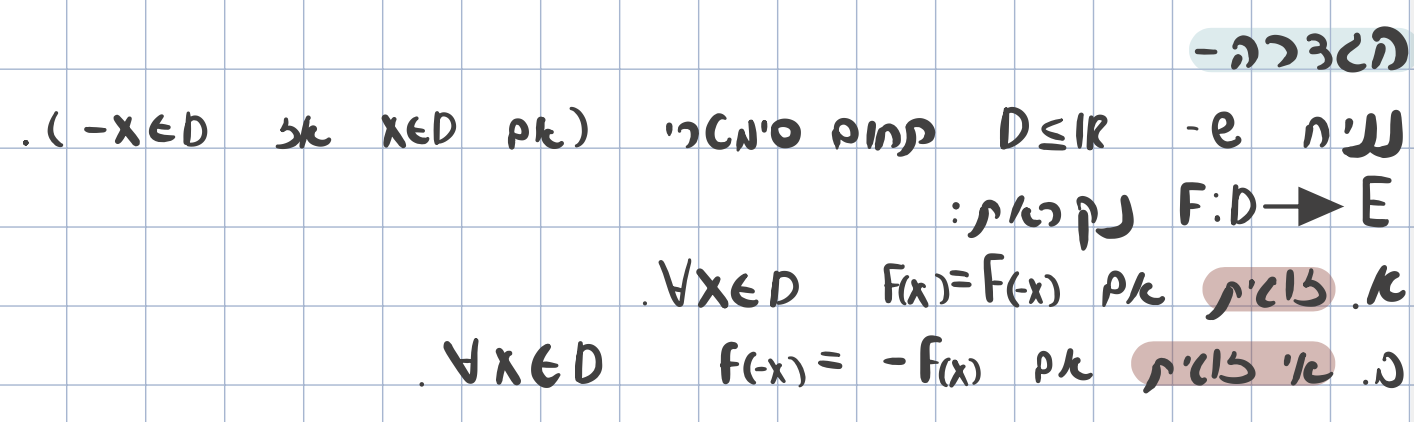 הגדרה-
נניח ש- D≤ℝ תחום סימטרי (אם x∈D אז -x∈D).
F:D→E נקראת:
א. זוגית אם F(x)=F(-x) ∀x∈D.
ב. אי זוגית אם F(-x)= -F(x) ∀x∈D.